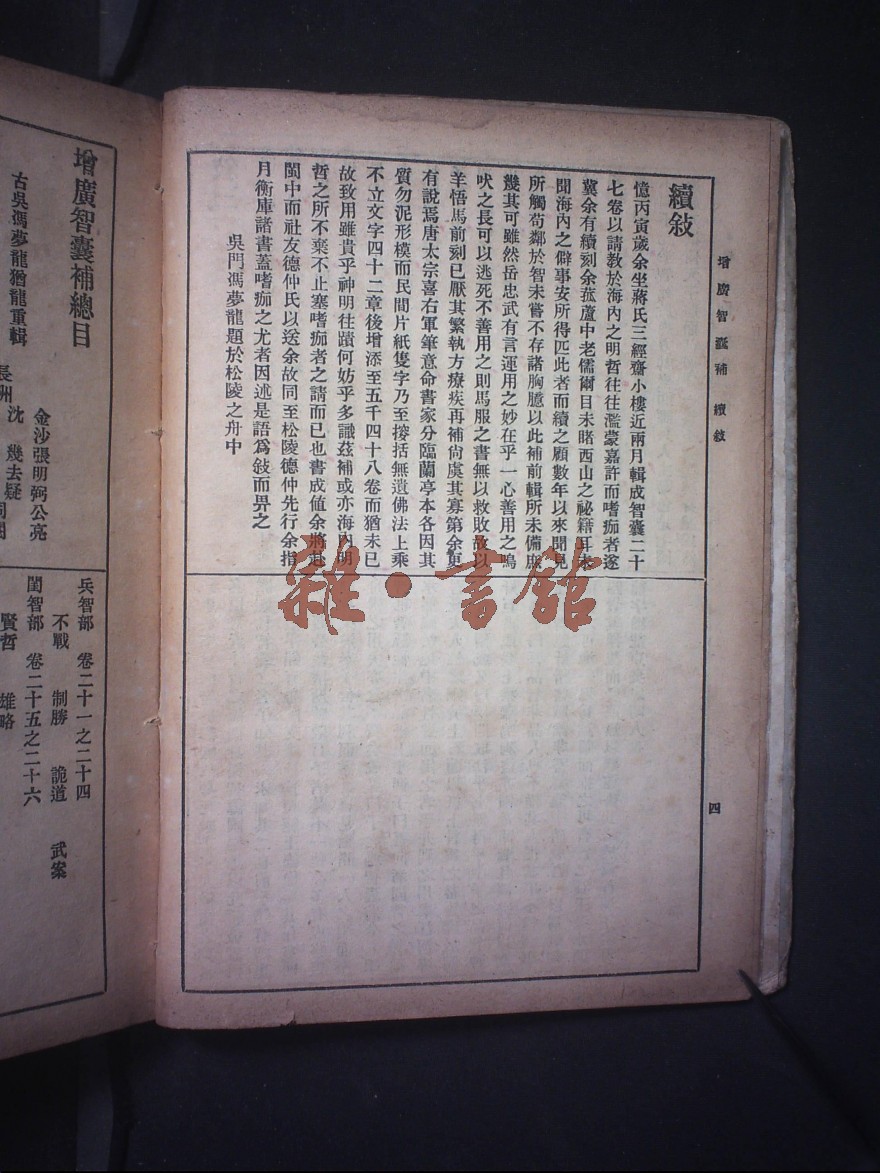 增廣智囊補 續敍
四
續敍
憶丙寅歲余坐蔣氏三經齋小樓近兩月輯成智囊二十
七卷以請教於海內之明哲往往濫蒙嘉許而嗜痂者遂
冀余有續刻余菰蘆中老儒爾目未睹西山之祕籍耳未
聞海內之僻事安所得匹此者而續之顧數年以來聞見
所觸苟鄰於智未嘗不存諸胸臆以此補前輯所未備庶
幾其可雖然岳忠武有言運用之妙在乎一心善用之鳴
吠之長可以逃死不善用之則馬服之書無以救敗故以
羊悟馬前刻已厭其繁執方療疾再補尙虞其寡第余更
有說焉唐太宗喜右軍筆意命書家分臨蘭亭本各因其
質勿泥形模而民間片紙隻字乃至搜括無遺佛法上乘
不立文字四十二章後增添至五千四十八卷而猶未已
故致用雖貴乎神明往蹟何妨乎多識茲補或亦海內明
哲之所不棄不止塞嗜痂者之請而已也書成値余將赴
閩中而社友德仲氏以送余故同至松陵德仲先行余指
月衡庫諸書蓋嗜痂之尤者因述是語爲敍而畀之
吳門馮夢龍題於松陵之舟中
雜·書館
增廣智囊補總目
古吳馮夢龍猶龍重輯
金沙張明弼公亮
長洲沈幾去疑
同閱
兵智部 卷二十一之二十四
不戰 制勝 詭道 武案
閨智部 卷二十五之二十六
賢哲 雄略